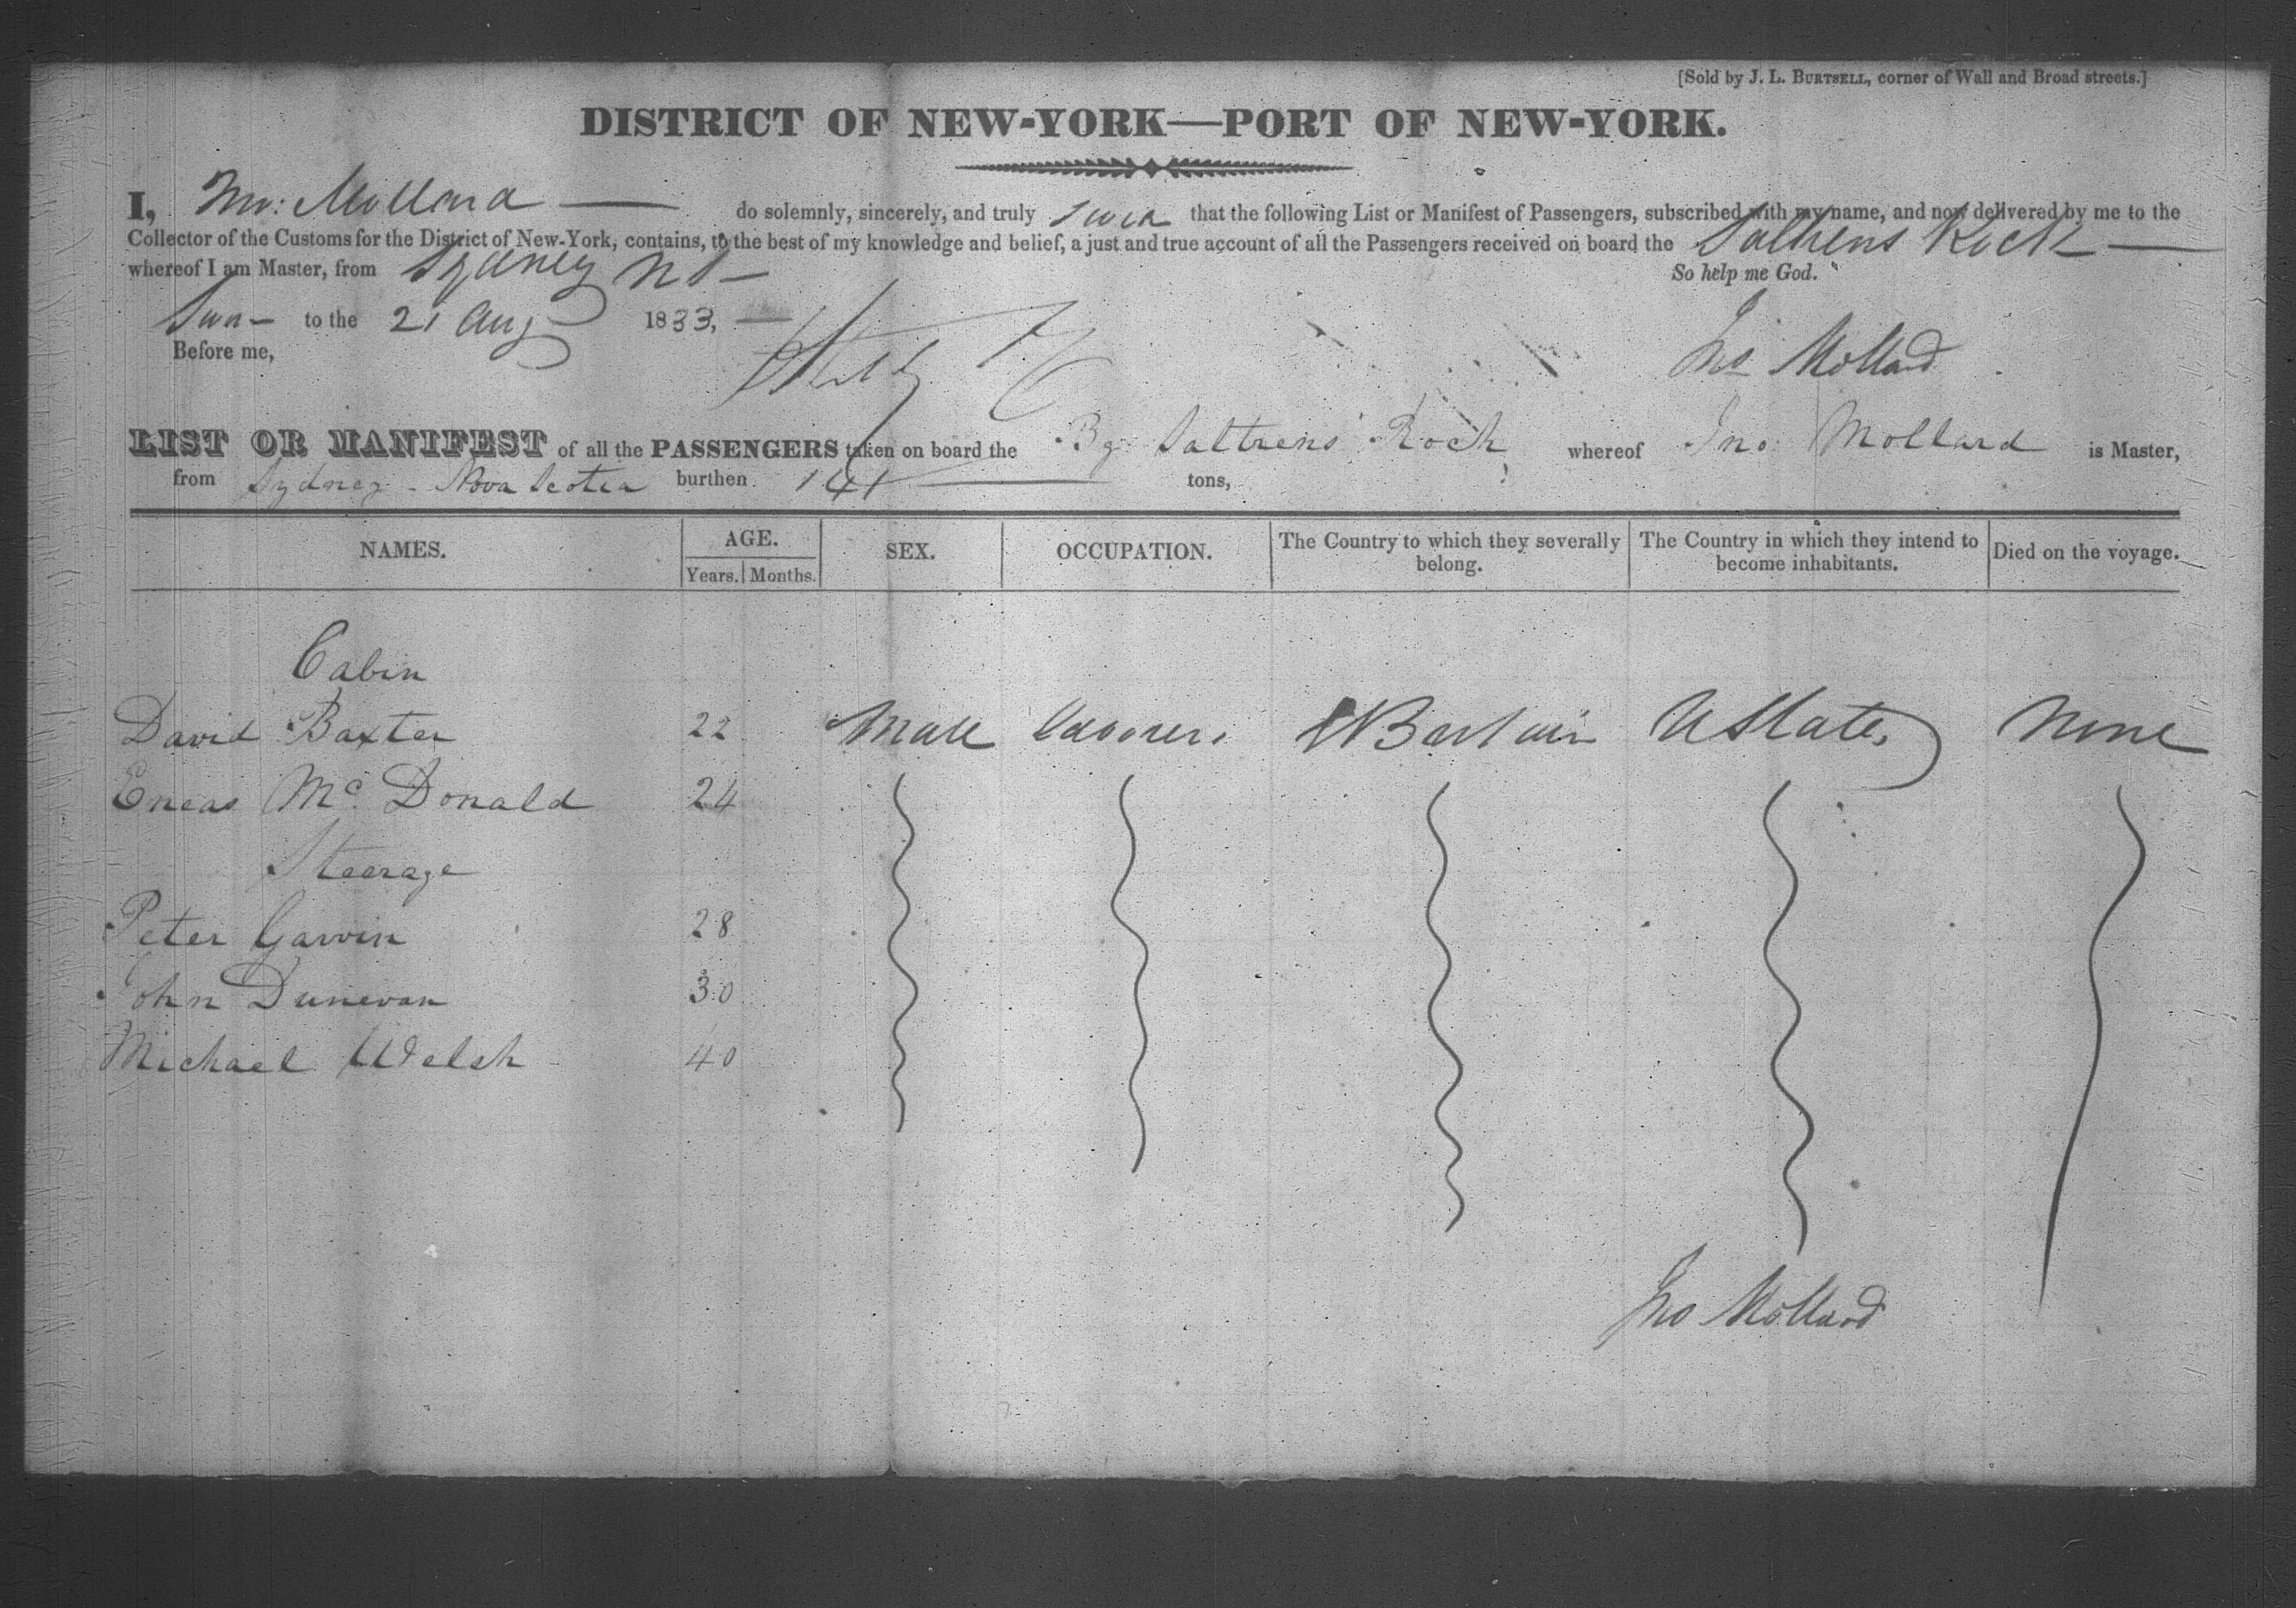 [Sold by J. L. BURTSELL, corner of Wall and Broad streets.]
DISTRICT OF NEW-YORK—PORT OF NEW-YORK.
I, Jno: Mollard — do solemnly, sincerely, and truly swear that the following List or Manifest of Passengers, subscribed with my name, and now delivered by me to the
Collector of the Customs for the District of New-York, contains, to the best of my knowledge and belief, a just and true account of all the Passengers received on board the Saltrens Rock —
whereof I am Master, from Sydney NS — So help me God.
to the 21 Aug 1833, —
Before me,
Jno Mollard
LIST OR MANIFEST of all the PASSENGERS taken on board the Bg Saltrens Rock whereof Jno Mollard is Master,
from Sydney - Nova Scotia burthen 141 — tons,
NAMES. AGE. SEX. OCCUPATION. The Country to which they severally belong. The Country in which they intend to become inhabitants. Died on the voyage.
Years. Months.
Cabin
David Baxter 22 Male Labourer. UStates None
Eneas McDonald 24
Steerage
Peter Garvin 28
John Dunevan 30
Michael Welsh 40
Jno Mollard